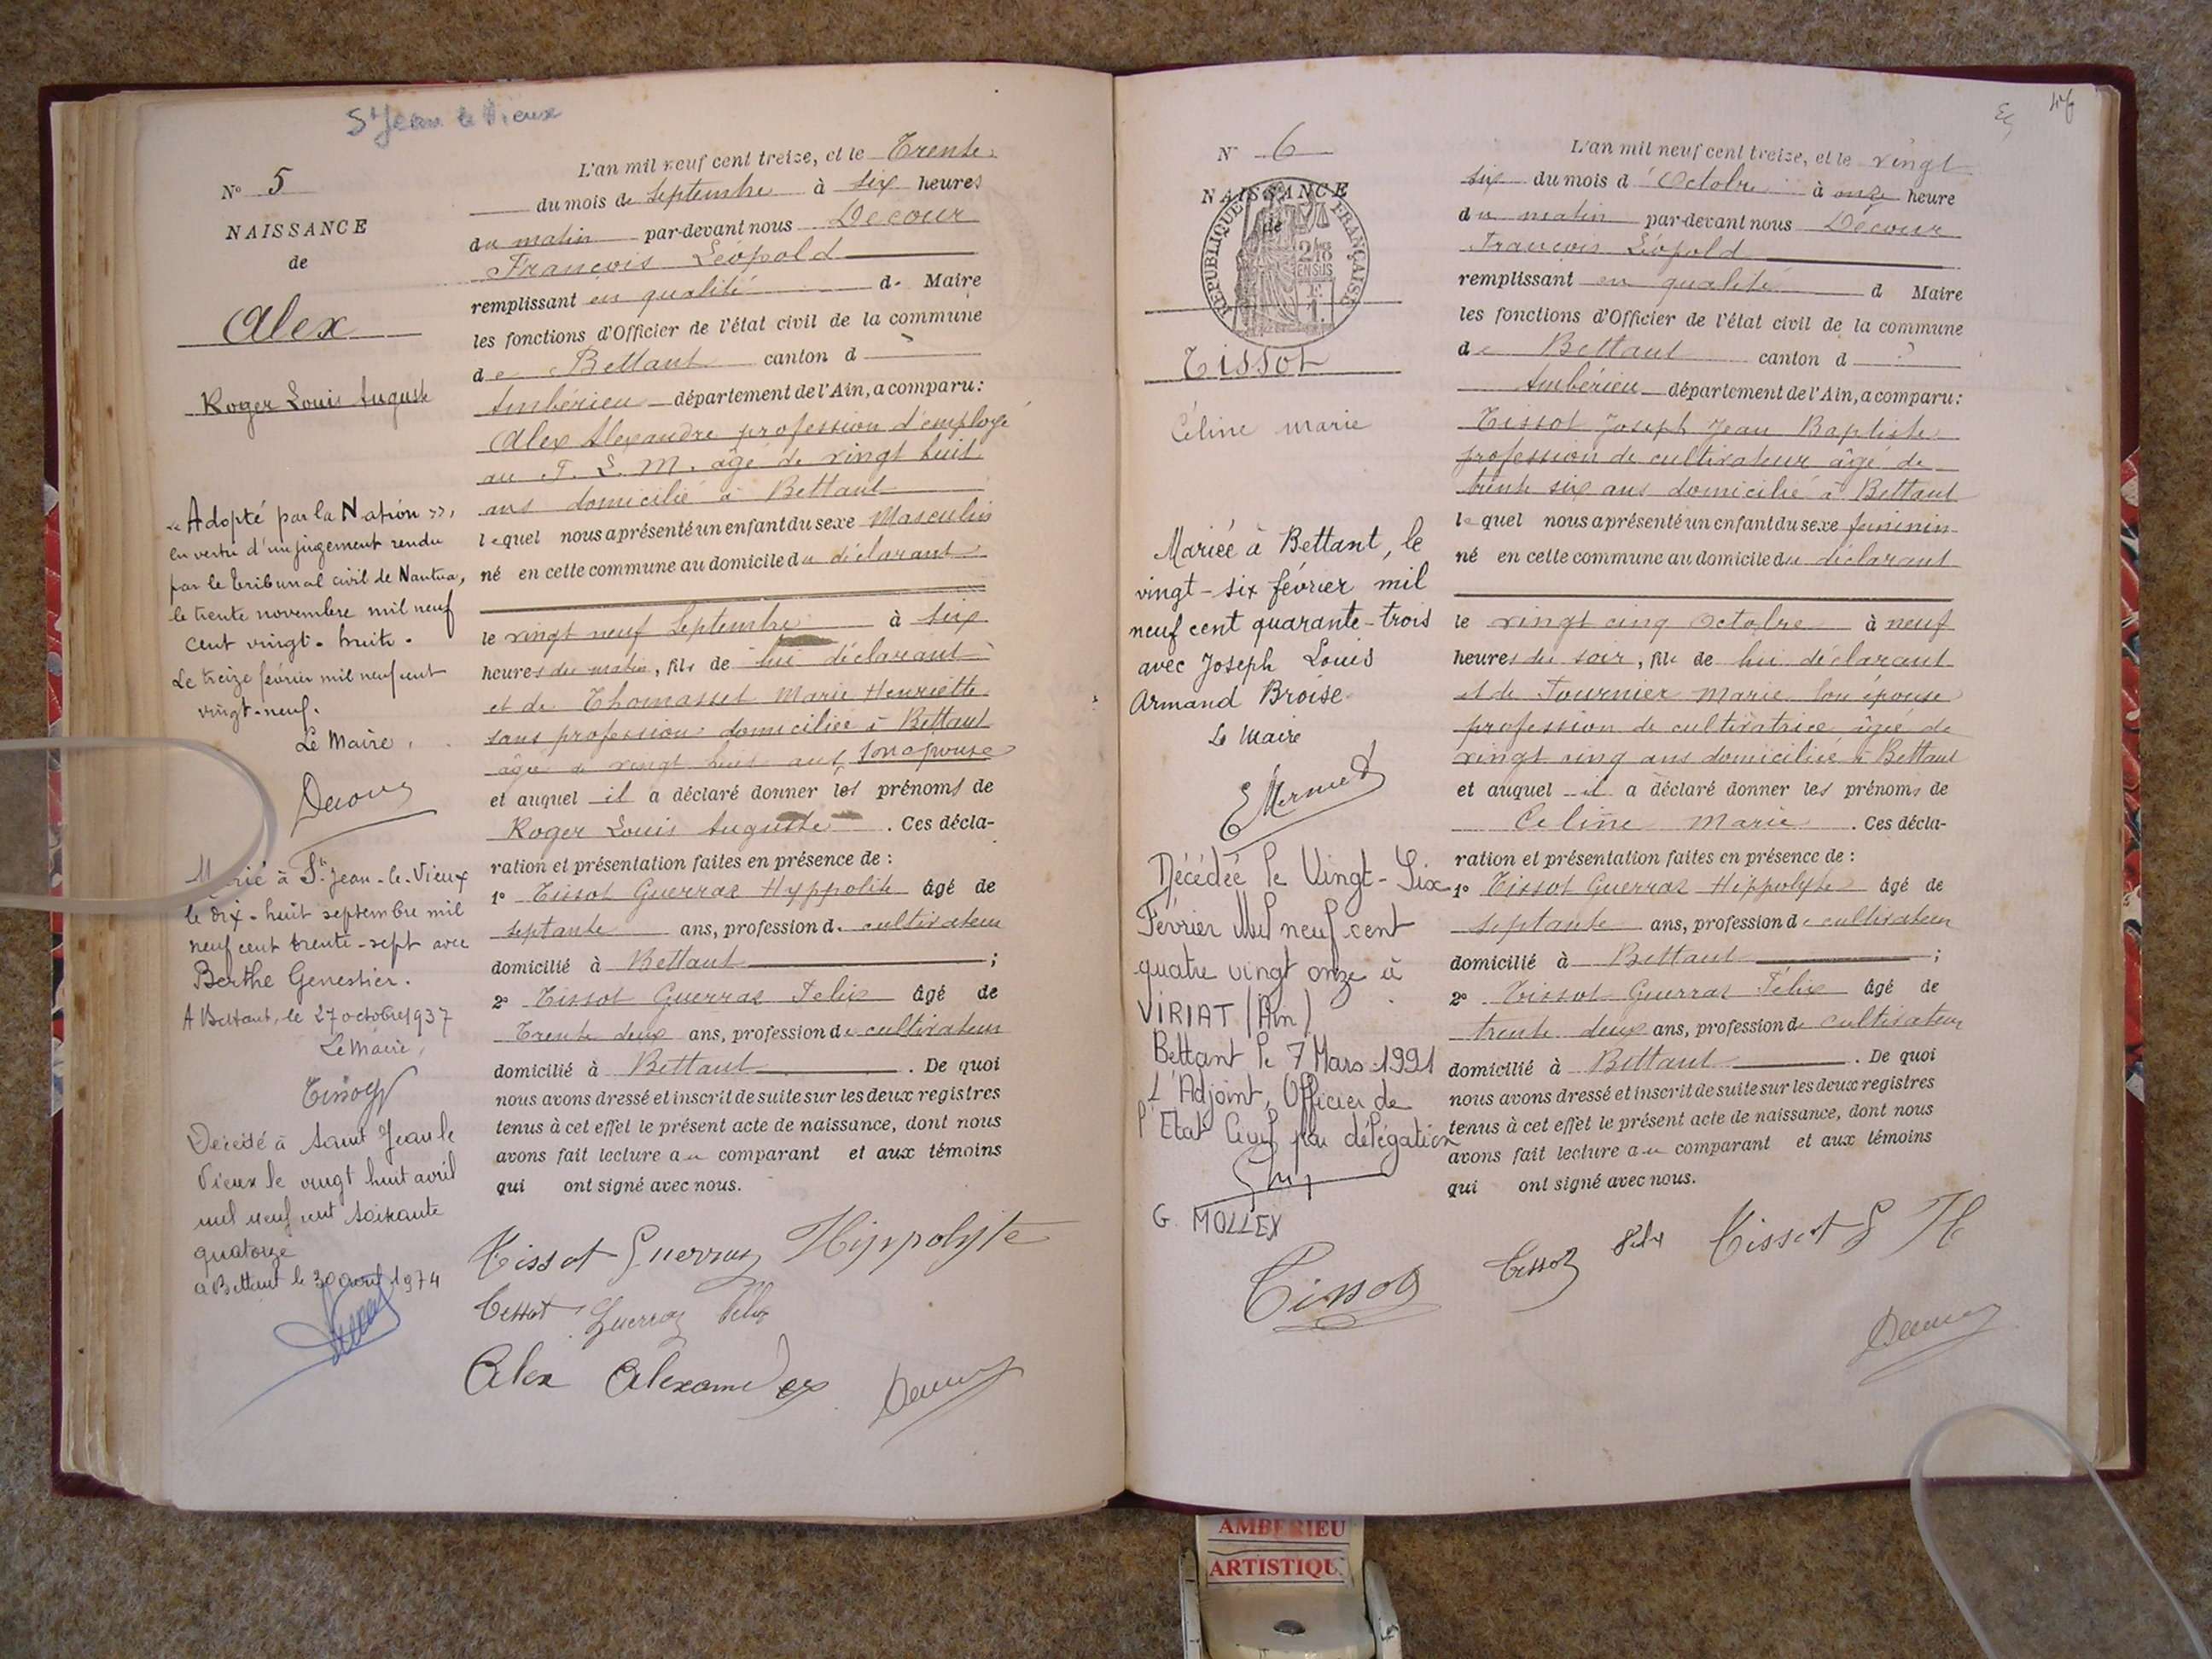 St Jean le Vieux
N° 5
NAISSANCE
de
Alex
Roger Louis Auguste
« Adopté par la Nation »,
en vertu d'un jugement rendu
par le tribunal civil de Nantua,
le trente novembre mil neuf
cent vingt-huit.
Le treize février mil neuf cent
vingt-neuf.
Le Maire,
Decour
Marié à St Jean-le-Vieux
le dix-huit septembre mil
neuf cent trente-sept avec
Berthe Genestier.
A Bettant, le 27 octobre 1937
Le Maire,
Tissot
Décédé à Saint Jean le
Vieux le vingt huit avril
mil neuf cent soixante
quatorze
à Bettant le 30 avril 1974
L'an mil neuf cent treize, et le Trente
du mois de Septembre à six heures
du matin par-devant nous Decour
François Léopold
remplissant en qualité de Maire
les fonctions d'Officier de l'état civil de la commune
de Bettant canton d
Ambérieu département de l'Ain, a comparu:
Alex Alexandre profession d'employé
au P. L. M. âgé de vingt huit
ans domicilié à Bettant
lequel nous a présenté un enfant du sexe Masculin
né en cette commune au domicile du déclarant
le vingt neuf Septembre à six
heures du matin, fils de lui déclarant
et de Thomasset Marie Henriette
sans profession domiciliée à Bettant
âgée de vingt huit ans son épouse
et auquel il a déclaré donner les prénoms de
Roger Louis Auguste. Ces décla-
ration et présentation faites en présence de :
1° Tissot Guerraz Hyppolite âgé de
septante ans, profession de cultivateur
domicilié à Bettant ;
2° Tissot Guerraz Félix âgé de
Trente deux ans, profession de cultivateur
domicilié à Bettant . De quoi
nous avons dressé et inscrit de suite sur les deux registres
tenus à cet effet le présent acte de naissance, dont nous
avons fait lecture au comparant et aux témoins
qui ont signé avec nous.
Tissot-Guerraz Hippolyte
Tissot Guerraz Félix
Alex Alexandre Decour
46
N° 6
NAISSANCE
de
RÉPUBLIQUE FRANÇAISE
Tissot
Céline Marie
Mariée à Bettant, le
vingt-six février mil
neuf cent quarante-trois
avec Joseph Louis
Armand Broise.
Le Maire
Décédée le Vingt-Six
Février Mil neuf cent
quatre vingt onze à
VIRIAT (Ain)
Bettant le 7 Mars 1991
L'Adjoint, Officier de
l'Etat Civil par délégation
G. MOLLEX
L'an mil neuf cent treize, et le vingt
six du mois d'Octobre à onze heure
du matin par-devant nous Décour
François Léopold
remplissant en qualité d Maire
les fonctions d'Officier de l'état civil de la commune
de Bettant canton d
Ambérieu département de l'Ain, a comparu:
Tissot Joseph Jean Baptiste
profession de cultivateur âgé de
trente six ans domicilié à Bettant
lequel nous a présenté un enfant du sexe féminin
né en cette commune au domicile du déclarant
le vingt cinq Octobre à neuf
heures du soir, fille de lui déclarant
et de Tournier Marie son épouse
profession de cultivatrice âgée de
vingt cinq ans domiciliée à Bettant
et auquel il a déclaré donner les prénoms de
Céline Marie . Ces décla-
ration et présentation faites en présence de :
1° Tissot Guerraz Hippolyte âgé de
septante ans, profession de cultivateur
domicilié à Bettant ;
2° Tissot Guerraz Félix âgé de
trente deux ans, profession de cultivateur
domicilié à Bettant . De quoi
nous avons dressé et inscrit de suite sur les deux registres
tenus à cet effet le présent acte de naissance, dont nous
avons fait lecture au comparant et aux témoins
qui ont signé avec nous.
Tissot Tissot Félix Tissot G H
Decour
AMBERIEU
ARTISTIQU